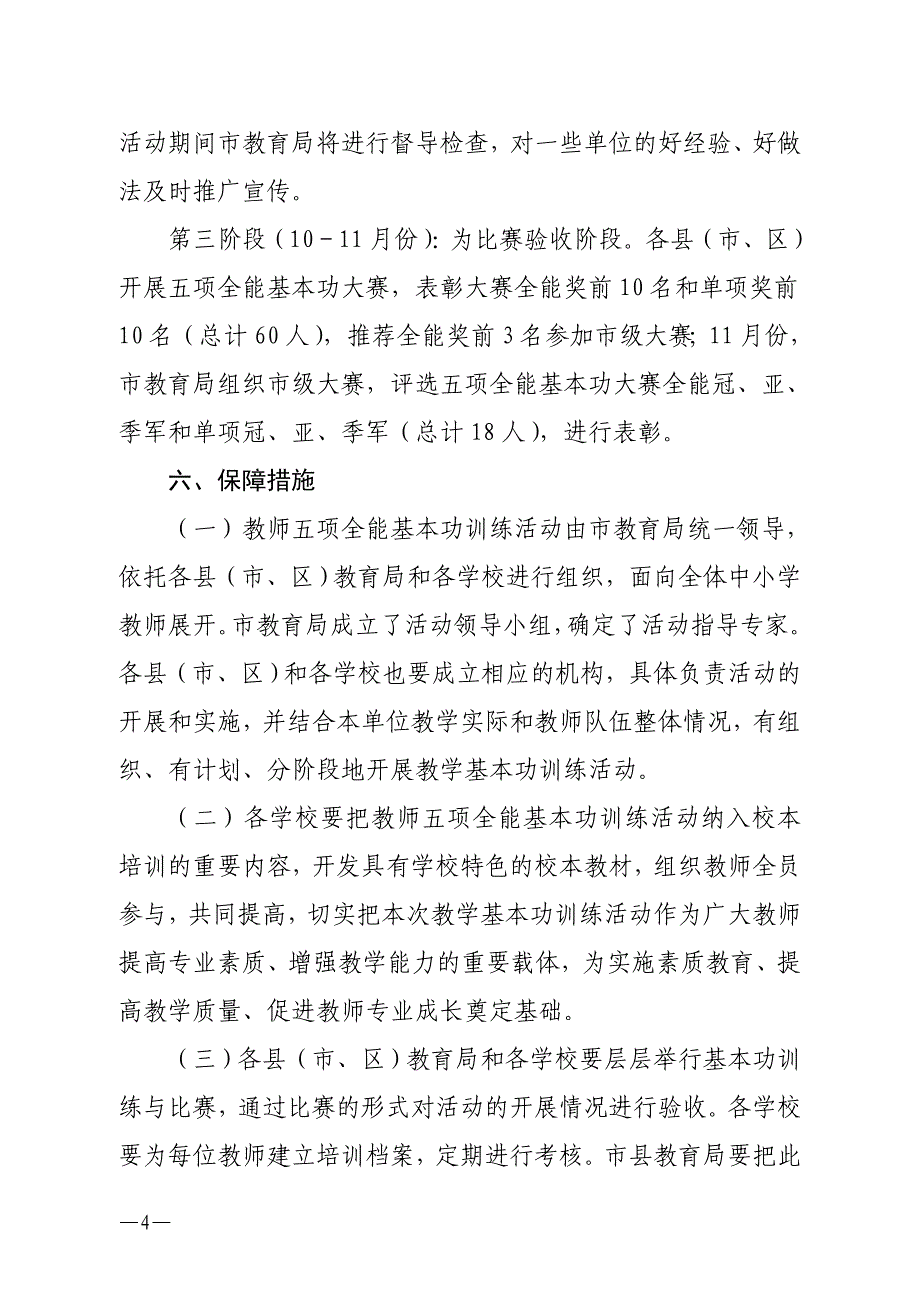 活动期间市教育局将进行督导检查，对一些单位的好经验、好做
法及时推广宣传。
第三阶段（10－11月份）：为比赛验收阶段。各县（市、区）
开展五项全能基本功大赛，表彰大赛全能奖前10名和单项奖前
10名（总计60人），推荐全能奖前3名参加市级大赛；11月份，
市教育局组织市级大赛，评选五项全能基本功大赛全能冠、亚、
季军和单项冠、亚、季军（总计18人），进行表彰。
六、保障措施
（一）教师五项全能基本功训练活动由市教育局统一领导，
依托各县（市、区）教育局和各学校进行组织，面向全体中小学
教师展开。市教育局成立了活动领导小组，确定了活动指导专家。
各县（市、区）和各学校也要成立相应的机构，具体负责活动的
开展和实施，并结合本单位教学实际和教师队伍整体情况，有组
织、有计划、分阶段地开展教学基本功训练活动。
（二）各学校要把教师五项全能基本功训练活动纳入校本
培训的重要内容，开发具有学校特色的校本教材，组织教师全员
参与，共同提高，切实把本次教学基本功训练活动作为广大教师
提高专业素质、增强教学能力的重要载体，为实施素质教育、提
高教学质量、促进教师专业成长奠定基础。
（三）各县（市、区）教育局和各学校要层层举行基本功训
练与比赛，通过比赛的形式对活动的开展情况进行验收。各学校
要为每位教师建立培训档案，定期进行考核。市县教育局要把此
—4—